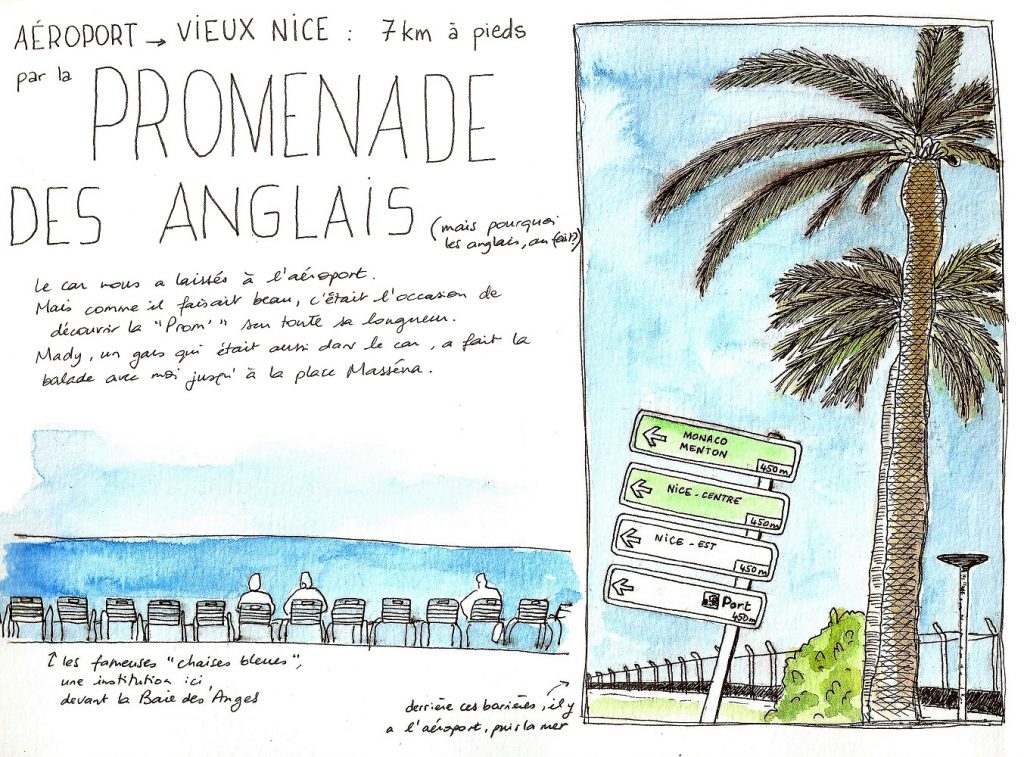 AÉROPORT → VIEUX NICE : 7 km à pieds
par la
PROMENADE
DES ANGLAIS
(mais pourquoi
les anglais, au fait?)
Le car nous a laissés à l'aéroport.
Mais comme il faisait beau, c'était l'occasion de
découvrir la "Prom'" sur toute sa longueur.
Mady, un gars qui était aussi dans le car, a fait la
balade avec moi jusqu'à la place Masséna.
↑ les fameuses "chaises bleues",
une institution ici,
devant la Baie des Anges
derrière ces barrières, il y
a l'aéroport, puis la mer
MONACO
MENTON
450m
NICE-CENTRE
450m
NICE-EST
450m
Port
450m